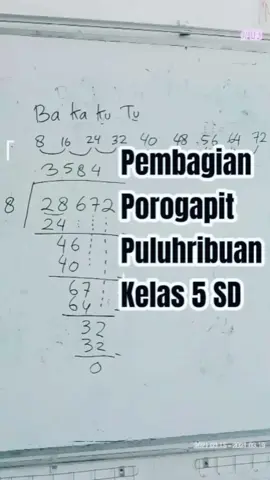 Ba Ka Ku Tu
8 16 24 32 40 48 56 64 72
3584
8 28672
24
46
40
67
64
32
32
0
Pembagian
Porogapit
Puluhribuan
Kelas 5 SD